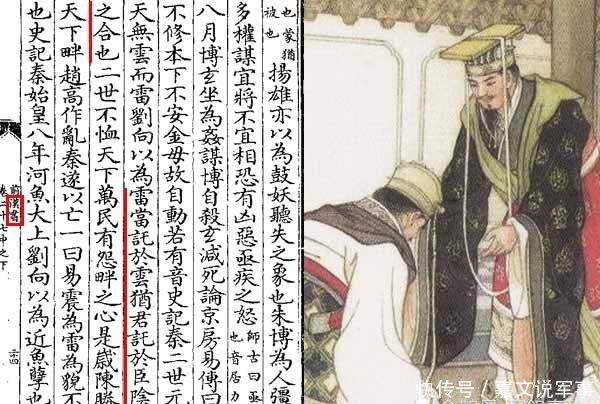 也蒙猶
被也
揚雄亦以為鼓妖聽失之象也朱博為人彊
多權謀宜將不宜相恐有凶惡亟疾之怒
師古曰亟
也音居力
八月博玄坐為姦謀博自殺玄減死論京房易傳曰
不修本下不安金毋故自動若有音史記秦二世元
天無雲而雷劉向以為雷當託於雲猶君託於臣陰
之合也二世不恤天下萬民有怨畔之心是歲陳勝
天下畔趙高作亂秦遂以亡一曰易震為雷為貌不
也史記秦始皇八年河魚大上劉向以為近魚孽也
前漢書
卷二十七中之下
快传号/嘉文说军事